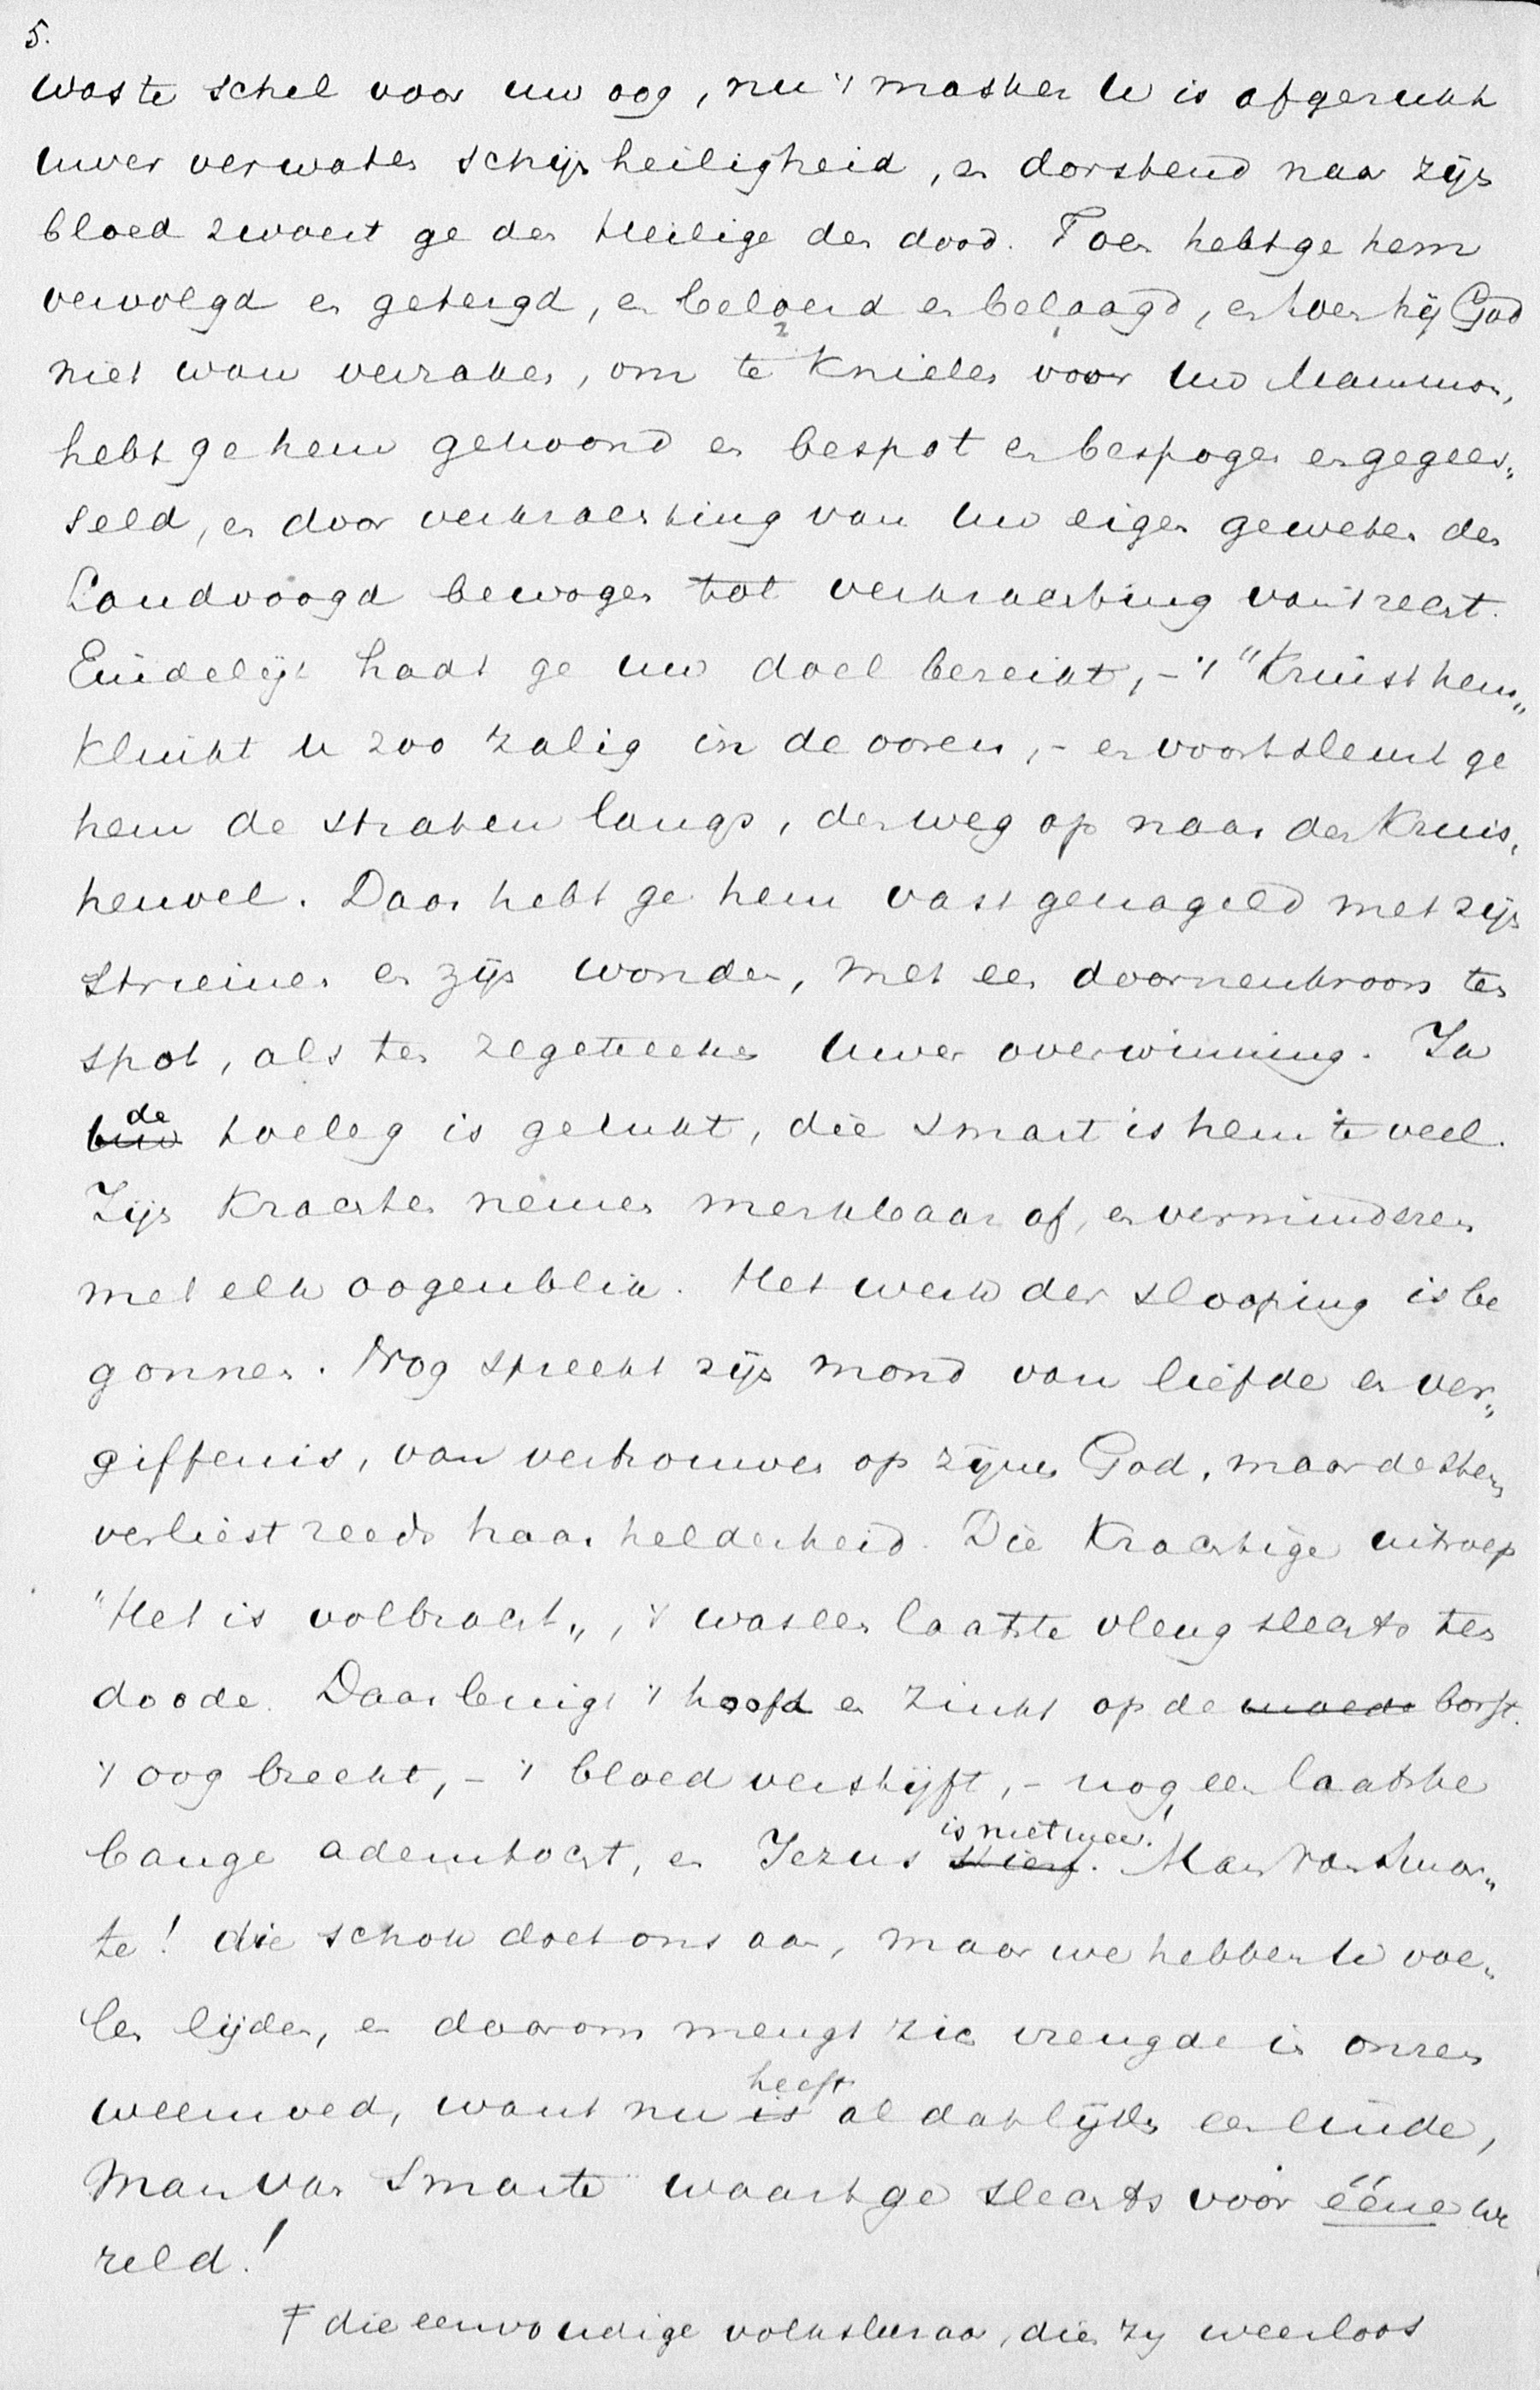 5.
was te schel voor uw oog, nu 't masker U is afgerukt
uwer verwaten schijnheiligheid, en dorstend naar zijn
bloed zwoert ge den Heilige den dood. Toen hebt ge hem
vervolgd en getergd, en beloerd en belaagd, en toen hij God
niet wou verzaken, om te knielen voor uw Mammon,
hebt ge hem gehoond en bespot en bespogen en gegees„
seld, en door verkrachting van uw eigen geweten den
Landvoogd bewogen tot verkrachting van 't recht.
Eindelijk hadt ge uw doel bereikt, - 't "Kruist hem„
klinkt u zoo zalig in de ooren, - en voort sleurt ge
hem de straten langs, den weg op naar den Kruis,
heuvel. Daar hebt ge hem vastgenageld met zijn
striemen en zijn wonden, met een doornenkroon ten
spot, als ten zegeteeken uwer overwinning. Ja
uw de toeleg is gelukt, die smart is hem te veel.
Zijn krachten nemen merkbaar af, en verminderen
met elk oogenblik. Het werk der slooping is be
gonnen. Nog spreekt zijn mond van liefde en ver„
giffenis, van vertrouwen op zijnen God, maar de stem
verliest reeds haar helderheid. Die krachtige uitroep
"Het is volbracht„, 't was een laatste vleug slechts ten
doode. Daar buigt 't hoofd en zinkt op de moede borst.
't oog breekt, - 't bloed verstijft, - nog een laatste
bange ademtocht, en Jezus stierf. is niet meer! Man van Smar„
te! die schok doet ons aan, maar we hebben U voe„
len lijden, en daarom mengt zich vreugde in onzen
weemoed, want nu is heeft al dat lijden een einde,
Man van Smarte waart ge slechts voor ééne we
reld!
Ŧ die eenvoudige volksleeraar, die zy weerloos